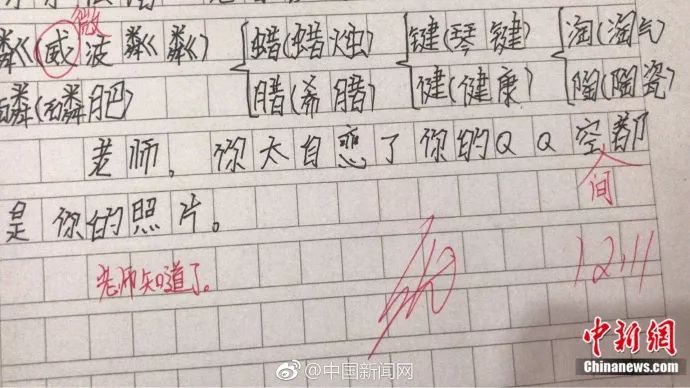 微
粼(威波粼粼) {蜡(蜡烛) {键(琴键) {淘(淘气)
磷(磷肥) 腊(希腊) 健(健康) 陶(陶瓷)
老师。你太自恋了你的QQ空都
间
是你的照片。
老师知道了。
12.11
@中国新闻网
中新网
Chinanews.com